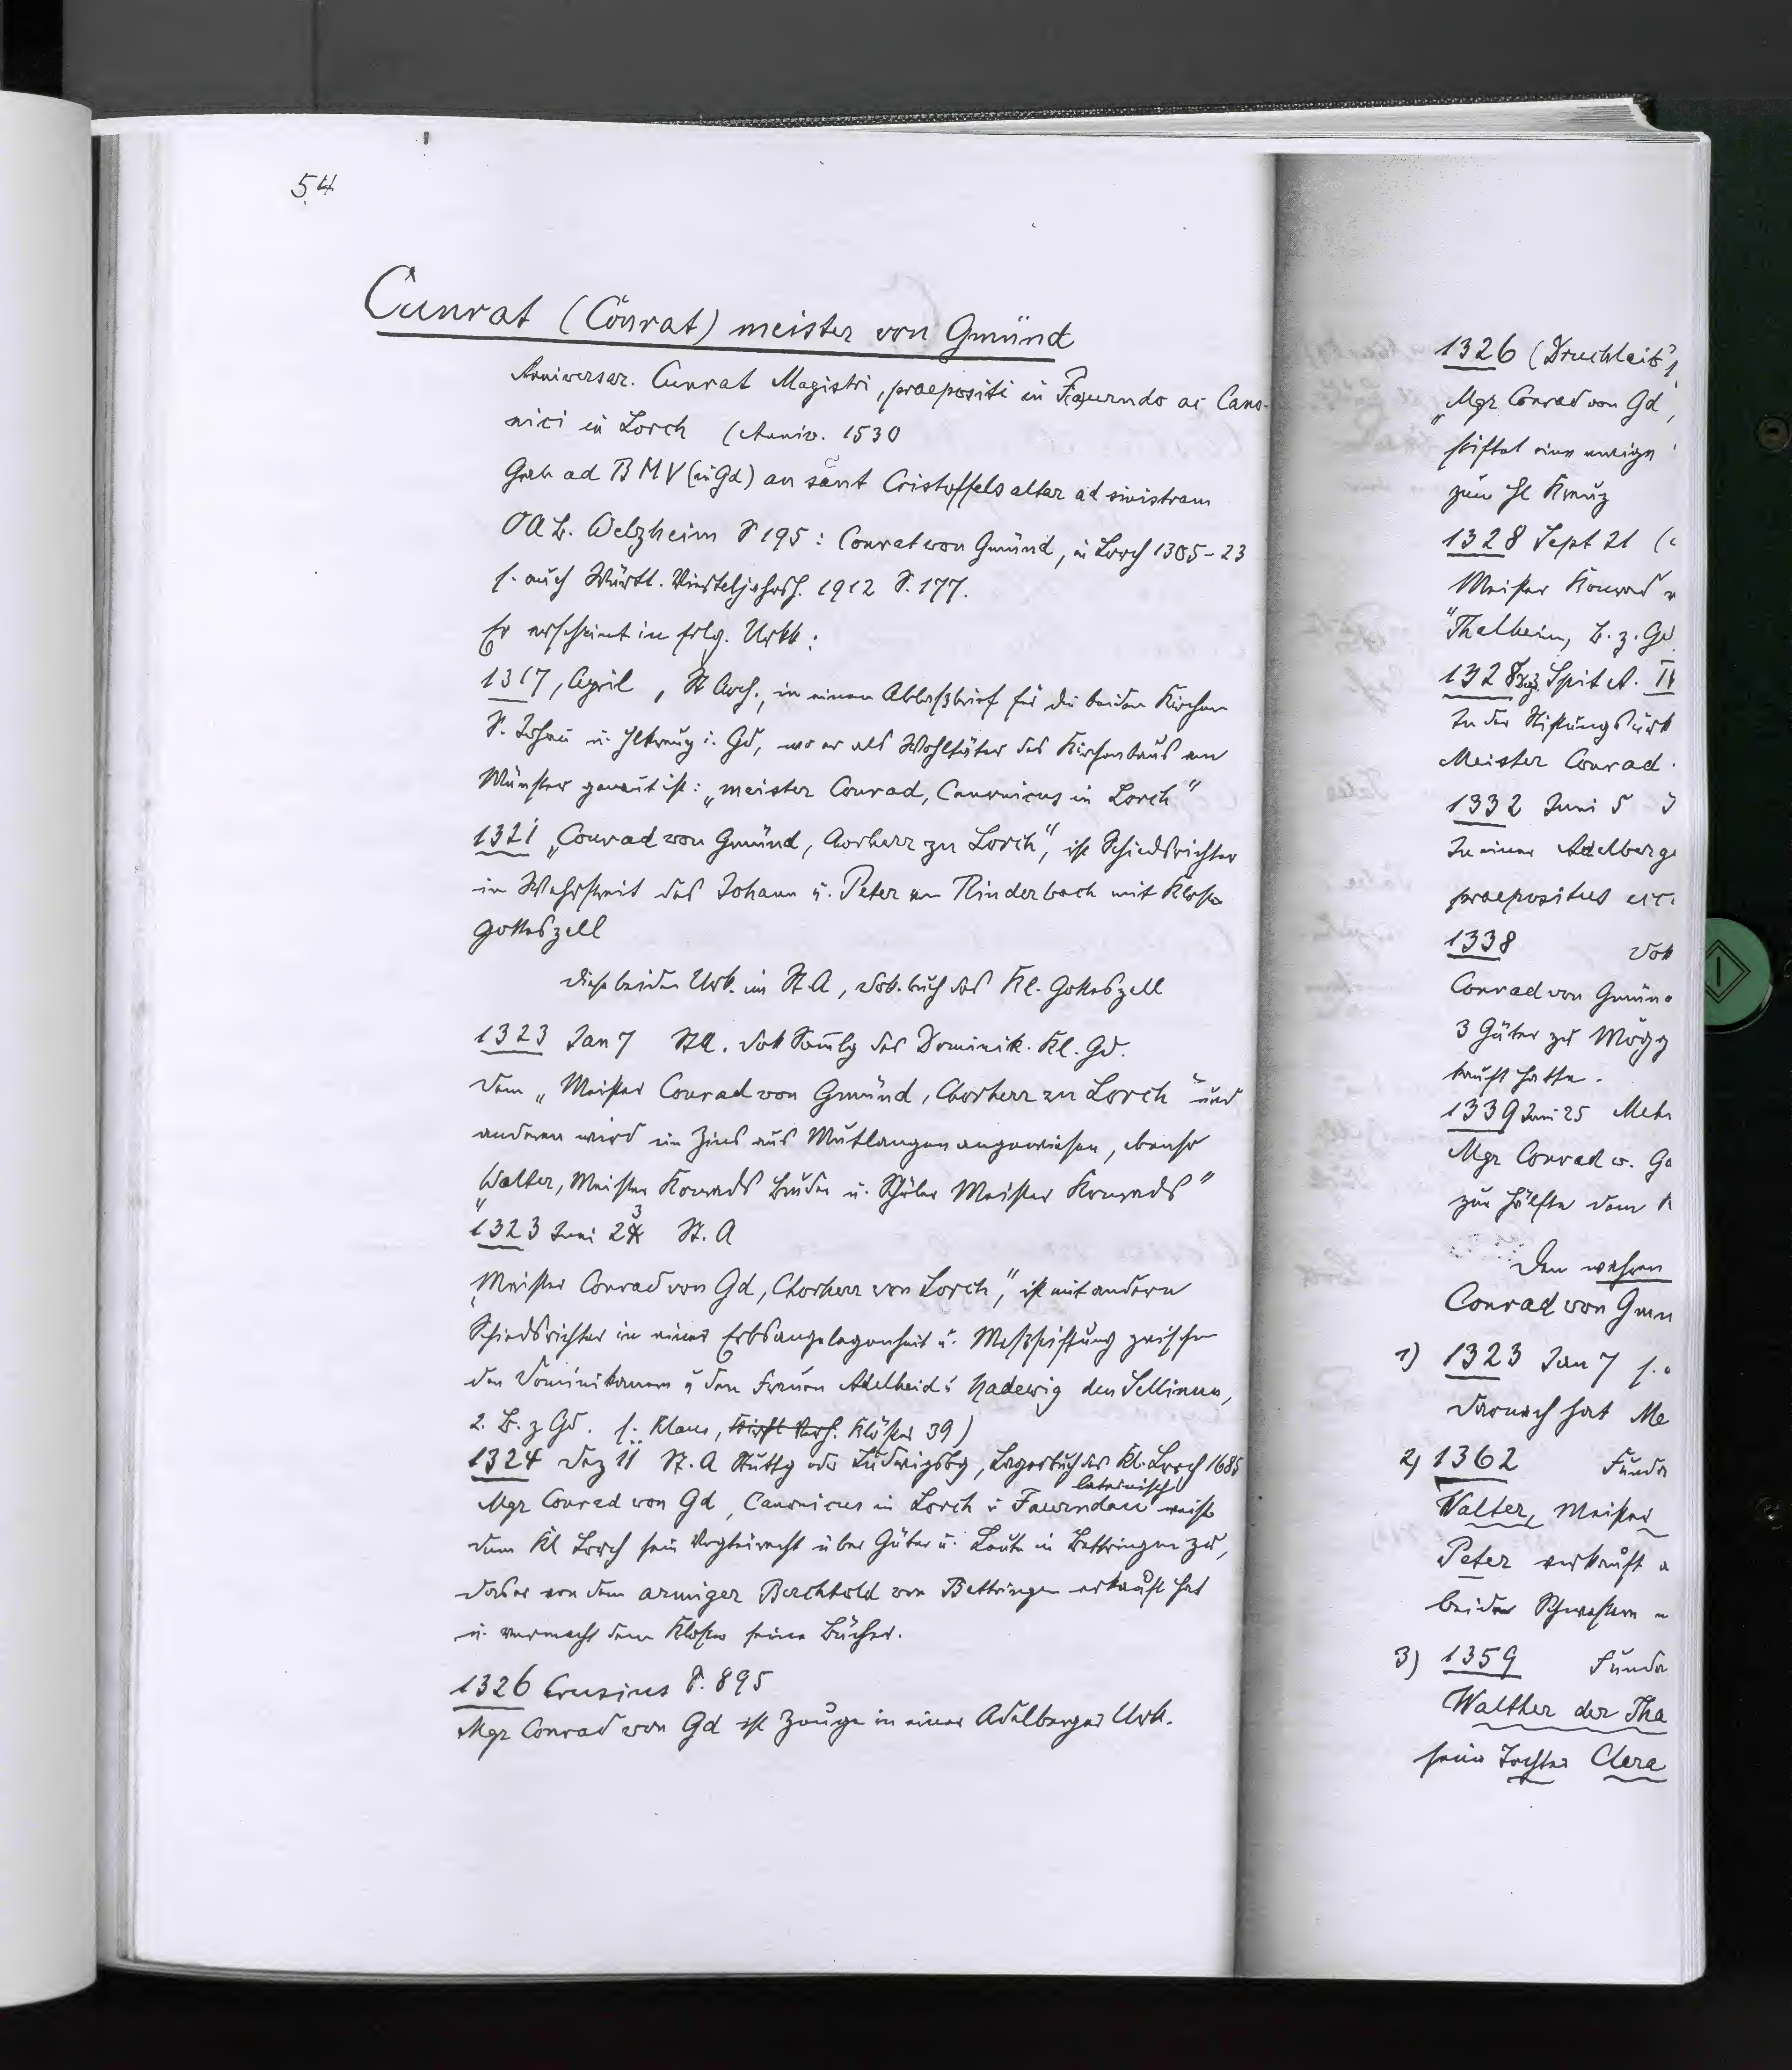 54
Cunrat (Conrat) meister von Gmünd
Anniversar. Cunrat Magistri, praepositi in Faurndo ac Cano-
nici in Lorch (Anniv. 1530
Grab ad BMV (in Gd) an sant Cristoffels altar ad sinistram
OAB. Welzheim S 195: Conrat von Gmünd, in Lorch 1305-23
s. auch Württ. Vierteljahrsh. 1912 S. 177.
Er erscheint in folg. Urkk:
1317, April, St Arch., in einem Ablaßbrief für die beiden Kirchen
S. Johan u. Hlkreuz i. Gd, wo er als Wohltäter des Kirchenbaus am
Münster genant ist: „meister Conrad, Canonicus in Lorch"
1321 „Conrad von Gmünd, Chorherr zu Lorch", ist Schiedsrichter
in Streit des Johann u. Peter von Rinderbach mit Kloster
Gotteszell
diese beiden Urk. im St.A, Dok.buch des Kl. Gotteszell
1323 Jan 7 StA. Dok Samlg des Dominik. Kl. Gd.
dem „Meister Conrad von Gmünd, Chorherr zu Lorch" und
anderen wird ein Zins aus Mutlangen angewiesen, ebenso
„Walter, Meister Konrads Bruder u. Schüler Meister Konrads"
1323 Juni 23 St. A
„Meister Conrad von Gd, Chorherr von Lorch", ist mit andern
Schiedsrichter in einer Erbsangelegenheit u. Meßstiftung zwischen
den Dominikanern u den Frauen Adelheid u Hadewig den Sellinen,
2. B. z Gd. s. Klaus, Klöster 39)
1324 Dez 11 St. A Stuttg oder Ludwigsbg, Lagerbuch des Kl. Lorch 1685
lateinisch
Mgr Conrad von Gd, Canonicus in Lorch u Faurndau weist
dem Kl Lorch sein Vogteirecht über Güter u. Leute in Bettringen zu,
das er von dem armiger Berchtold von Bettringen erkauft hat
u. vermacht dem Kloster seine Bücher.
1326 Crusius S. 895
Mgr Conrad von Gd ist Zeuge in einer Adelberger Urk.
1326 (Druckleib
„Mgr Conrad von Gd,
stiftet eine ewige
zum Hl Kreuz
1328 Sept 21
Meister Konrad
"Thalheim, B. z. Gd
1328 Dez. Spit A.
In der Stiftungsurk
Meister Conrad
1332 Juni 5
In einer Adelberge
praepositus ecc
1338 Dok
Conrad von Gmün
3 Güter zu Mögg
kauft hatte.
1339 Juni 25
Mgr Conrad v. G
zur Hälfte dem K
Den wahren
Conrad von Gmu
1) 1323 Jan 7
Darnach hat Me
2) 1362 Funda
Walter, Meister
Peter verkauft
beiden Schwestern
3) 1359 Funda
Walther der Tha
seine Tochter Clara